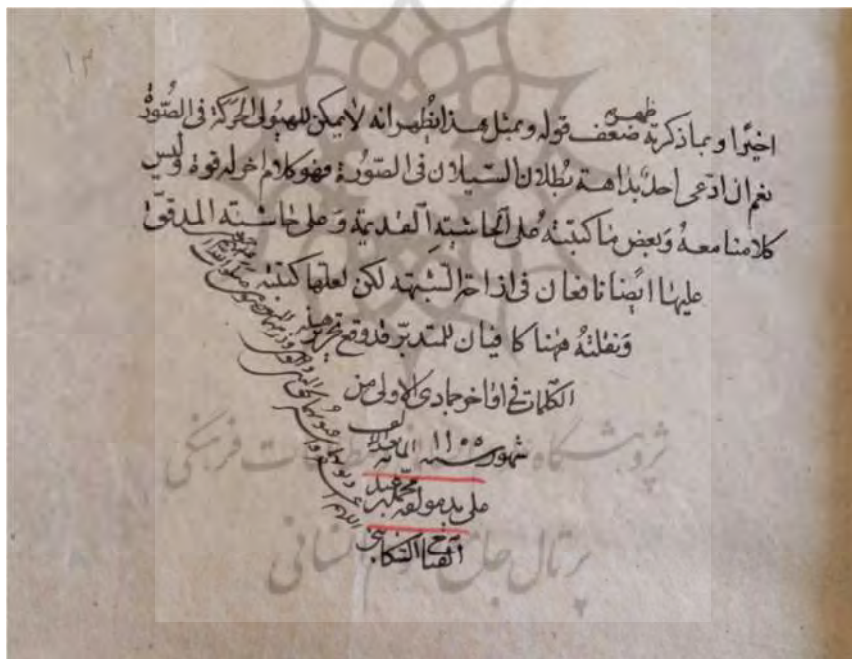 ١٣
اخيرًا وبما ذكرته ظهر ضعف قوله وبمثل هذا يظهر انه لا يمكن للهيولى الحركة فى الصّورة
نعم ان ادّعى احد بداهة بطلان السّيلان فى الصّورة فهو كلام اخر له قوة وليس
كلامنا معه وبعض ما كتبته على الحاشية القديمة وعلى حاشية المدقق
عليها ايضا نافعان فى ازاحة الشبهة لكن لعلها كتبته
ونقلته ههنا كافيان للمتدبّر قد وقع تحرير هذه
الكلمات فى اواخر جمادى الاولى من
شهور سنه ١١٠٥ المائة بعد الالف
على يد مولفه محمد بن عبد
الفتاح التنكابنى
پژوهشگاه علوم انسانی و مطالعات فرهنگی
پرتال جامع علوم انسانی